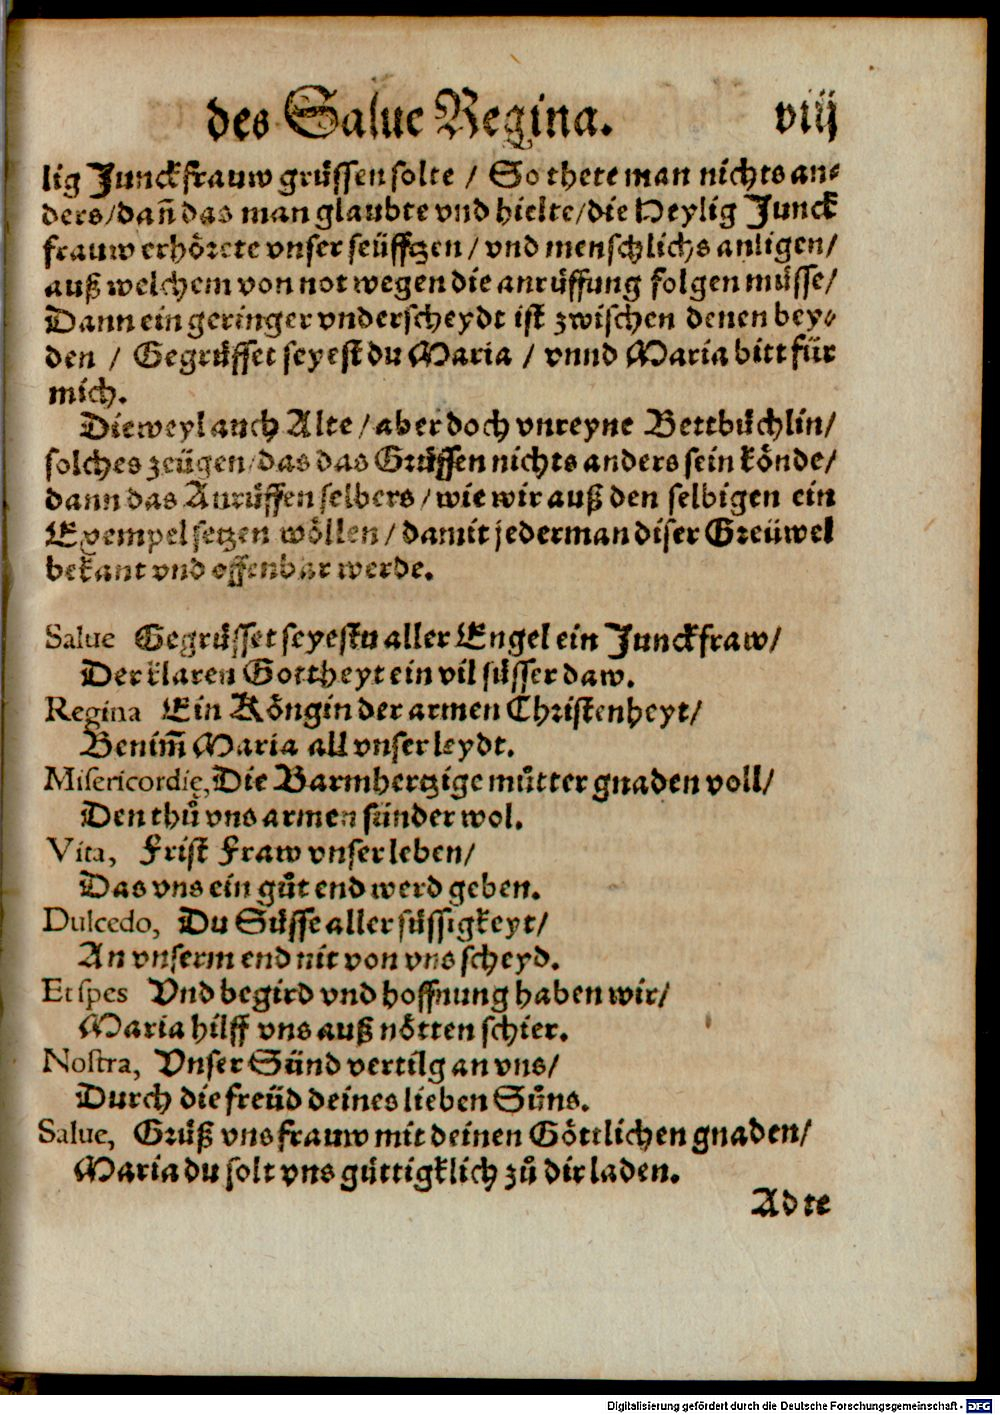 des Salue Regina. viij
lig Junckfrauw grüssen solte / So thete man nichts an⸗
ders / dañ das man glaubte vnd hielte / die Heylig Junck
frauw erhörete vnser seüfftzen / vnd menschlichs anligen /
auß welchem von not wegen die anrüffung folgen müsse /
Dann ein geringer vnderscheydt ist zwischen denen bey⸗
den / Gegrüsset seyest du Maria / vnnd Maria bitt für
mich.
Dieweyl auch Alte / aber doch vnreyne Bettbüchlin /
solches zeügen / das das Grüssen nichts anders sein könde /
dann das Anrüffen selbers / wie wir auß den selbigen ein
Exempel setzen wöllen / damit jederman diser Greüwel
bekant vnd offenbar werde.
Salue Gegrüsset seyestu aller Engel ein Junckfraw /
Der klaren Gottheyt ein vil süsser daw.
Regina Ein Köngin der armen Christenheyt /
Benim̃ Maria all vnser leydt.
Misericordię, Die Barmhertzige můtter gnaden voll /
Den thů vns armen sünder wol.
Vita, Frist Fraw vnser leben /
Das vns ein gůt end werd geben.
Dulcedo, Du Süsse aller süssigkeyt /
An vnserm end nit von vns scheyd.
Et spes Vnd begird vnd hoffnung haben wir /
Maria hilff vns auß nötten schier.
Nostra, Vnser Sünd vertilg an vns /
Durch die freüd deines lieben Sůns.
Salue, Grüß vns frauw mit deinen Göttlichen gnaden /
Maria du solt vns güttigklich zů dir laden.
Ad te
Digitalisierung gefördert durch die Deutsche Forschungsgemeinschaft - DFG